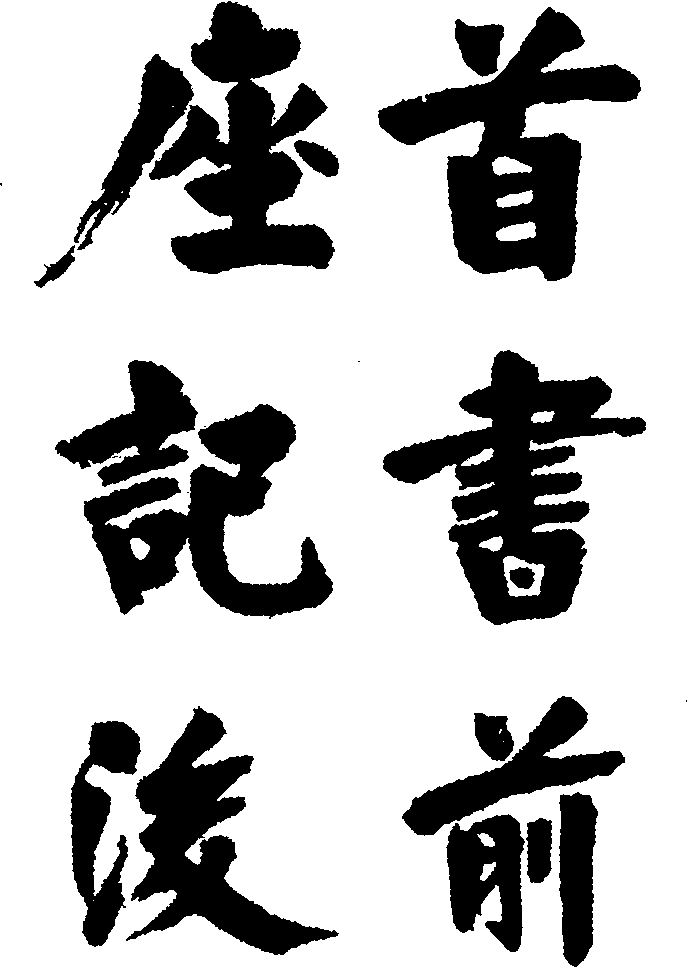 首座
書記
前後